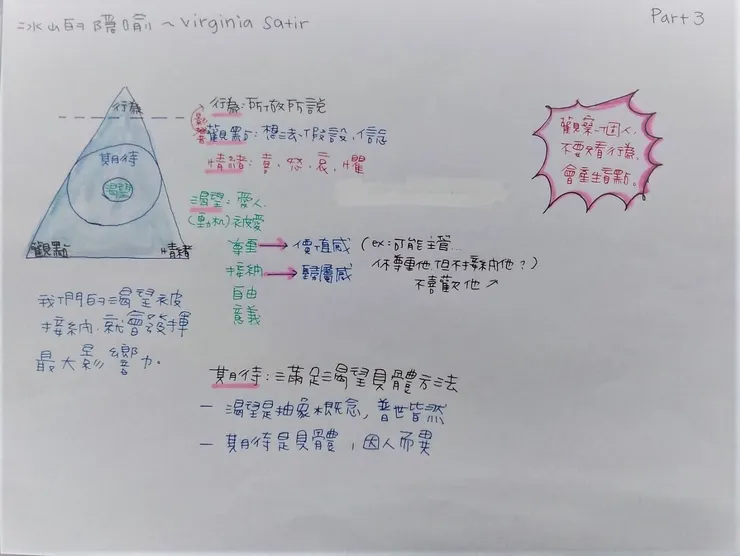 冰山的隱喻~Virginia Satir
Part 3
行為
期待
渴望
觀點
情緒
影響
行為:所做所說
觀點:想法、假設、信念
情緒:喜、怒、哀、懼
渴望:愛人
(動机)被愛
尊重→價值感 (ex:可能主管...
你尊重他,但不接納他?)
接納→歸屬感
不喜歡他↗
自由
意義
觀察一個人,
不要只看行為,
會產生盲點。
我們的渴望被
接納,就會發揮
最大影響力。
期待:滿足渴望具體方法
— 渴望是抽象概念,普世皆然
— 期待是具體,因人而異